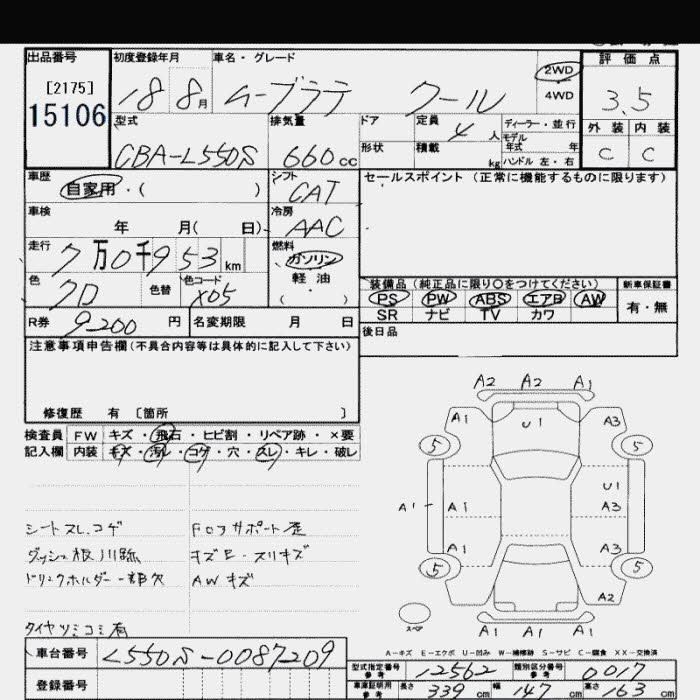 出品番号
[2175]
15106
初度登録年月
18 8月
車名・グレード
ムーブラテ クール
2WD
4WD
評価点
3.5
外装 内装
C C
型式
CBA-L550S
排気量
660cc
ドア
定員
4人
ディーラー・並行
モデル年式 年
形状
積載 kg
ハンドル 左・右
車歴
自家用・( )
シフト
CAT
セールスポイント (正常に機能するものに限ります)
車検
年 月( 日)
冷房
AAC
走行
7万0千953km
燃料
ガソリン
軽油
( ・ )
色
クロ
色替
色コード
X05
装備品 (純正品に限り○をつけてください)
新車保証書
PS PW ABS エアB AW
有・無
SR ナビ TV カワ
R券
9200円
名変期限 月 日
後日品
注意事項申告欄(不具合内容等は具体的に記入して下さい)
修復歴 有 [箇所 ]
検査員記入欄
FW キズ・飛石・ヒビ割・リペア跡・×要
内装 キズ・汚レ・コゲ・穴・スレ・キレ・破レ
シートスレ.コゲ
ドリンクホルダー一部欠
タイヤツミコミ有
Fコアサポート歪
キズE・スリキズ
AWキズ
A2 A2 A1
A1 U1 A3
5 5
U1
A1 A1 A3
A1 A3
5 5
A2
スペア
A1 A1 A1
A-キズ E-エクボ U-凹み W-補修跡 S-サビ C-腐食 XX-交換済
車台番号
L550S-0087209
登録番号
型式指定番号
参考
12562
類別区分番号
参考
0017
車庫証明用
参考
長さ 339cm
幅 147cm
高さ 163cm